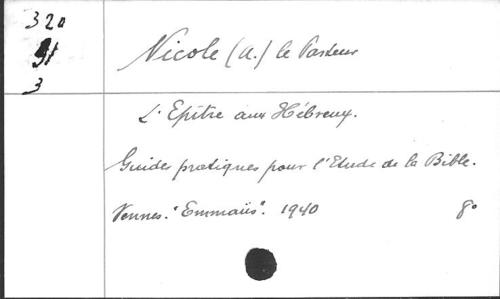 320
Nicole (A.) le Pasteur
3
L'Epître aux Hébreux.
Guides pratiques pour l'Etude de la Bible.
Vennes. "Emmaüs". 1940 8°